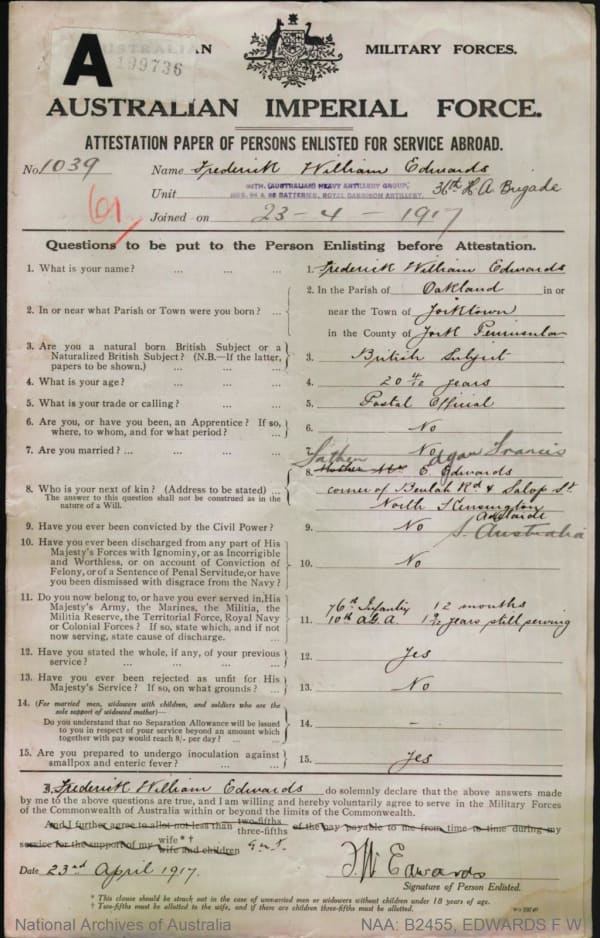 A
AUSTRALIAN MILITARY FORCES.
199736
AUSTRALIAN IMPERIAL FORCE.
ATTESTATION PAPER OF PERSONS ENLISTED FOR SERVICE ABROAD.
No. 1039 Name Frederick William Edwards
61
Unit 36TH. (AUSTRALIAN) HEAVY ARTILLERY GROUP, 36th H A Brigade
BATTERIES, ROYAL GARRISON ARTILLERY.
Joined on 23-4-1917
Questions to be put to the Person Enlisting before Attestation.
1. What is your name? ... ... ... 1. Frederick William Edwards
2. In or near what Parish or Town were you born? ... 2. In the Parish of Oakland in or
near the Town of Yorktown
in the County of York Peninsular
3. Are you a natural born British Subject or a
Naturalized British Subject? (N.B.—If the latter, 3. British Subject
papers to be shown.) ... ... ...
4. What is your age? ... ... ... 4. 20 4/12 years
5. What is your trade or calling? ... ... 5. Postal Official
6. Are you, or have you been, an Apprentice? If so,
where, to whom, and for what period? ... 6. No
7. Are you married? ... ... ... 7. No
Father Francis
8. Mother Mrs E. Edwards
8. Who is your next of kin? (Address to be stated) ... corner of Beulah Rd & Salop St.
The answer to this question shall not be construed as in the
nature of a Will. North Kensington
Adelaide
S. Australia
9. Have you ever been convicted by the Civil Power? 9. No
10. Have you ever been discharged from any part of His
Majesty's Forces with Ignominy, or as Incorrigible
and Worthless, or on account of Conviction of 10. No
Felony, or of a Sentence of Penal Servitude, or have
you been dismissed with disgrace from the Navy?
11. Do you now belong to, or have you ever served in, His
Majesty's Army, the Marines, the Militia, the 76th Infantry 12 months
Militia Reserve, the Territorial Force, Royal Navy 11. 10th A.G.A. years still serving
or Colonial Forces? If so, state which, and if not
now serving, state cause of discharge. ...
12. Have you stated the whole, if any, of your previous
service? ... ... ... ... 12. Yes
13. Have you ever been rejected as unfit for His
Majesty's Service? If so, on what grounds? ... 13. No
14. (For married men, widowers with children, and soldiers who are the
sole support of widowed mother)—
Do you understand that no Separation Allowance will be issued 14. -
to you in respect of your service beyond an amount which
together with pay would reach 8/- per day? ...
15. Are you prepared to undergo inoculation against
smallpox and enteric fever? ... ... 15. Yes
I, Frederick William Edwards do solemnly declare that the above answers made
by me to the above questions are true, and I am willing and hereby voluntarily agree to serve in the Military Forces
of the Commonwealth of Australia within or beyond the limits of the Commonwealth.
And I further agree to allot not less than two-fifths three-fifths of the pay payable to me from time to time during my
service for the support of my wife * † wife and children
Date 23rd April 1917. F W Edwards
Signature of Person Enlisted.
* This clause should be struck out in the case of unmarried men or widowers without children under 18 years of age.
† Two-fifths must be allotted to the wife, and if there are children three-fifths must be allotted.
National Archives of Australia NAA: B2455, EDWARDS F W